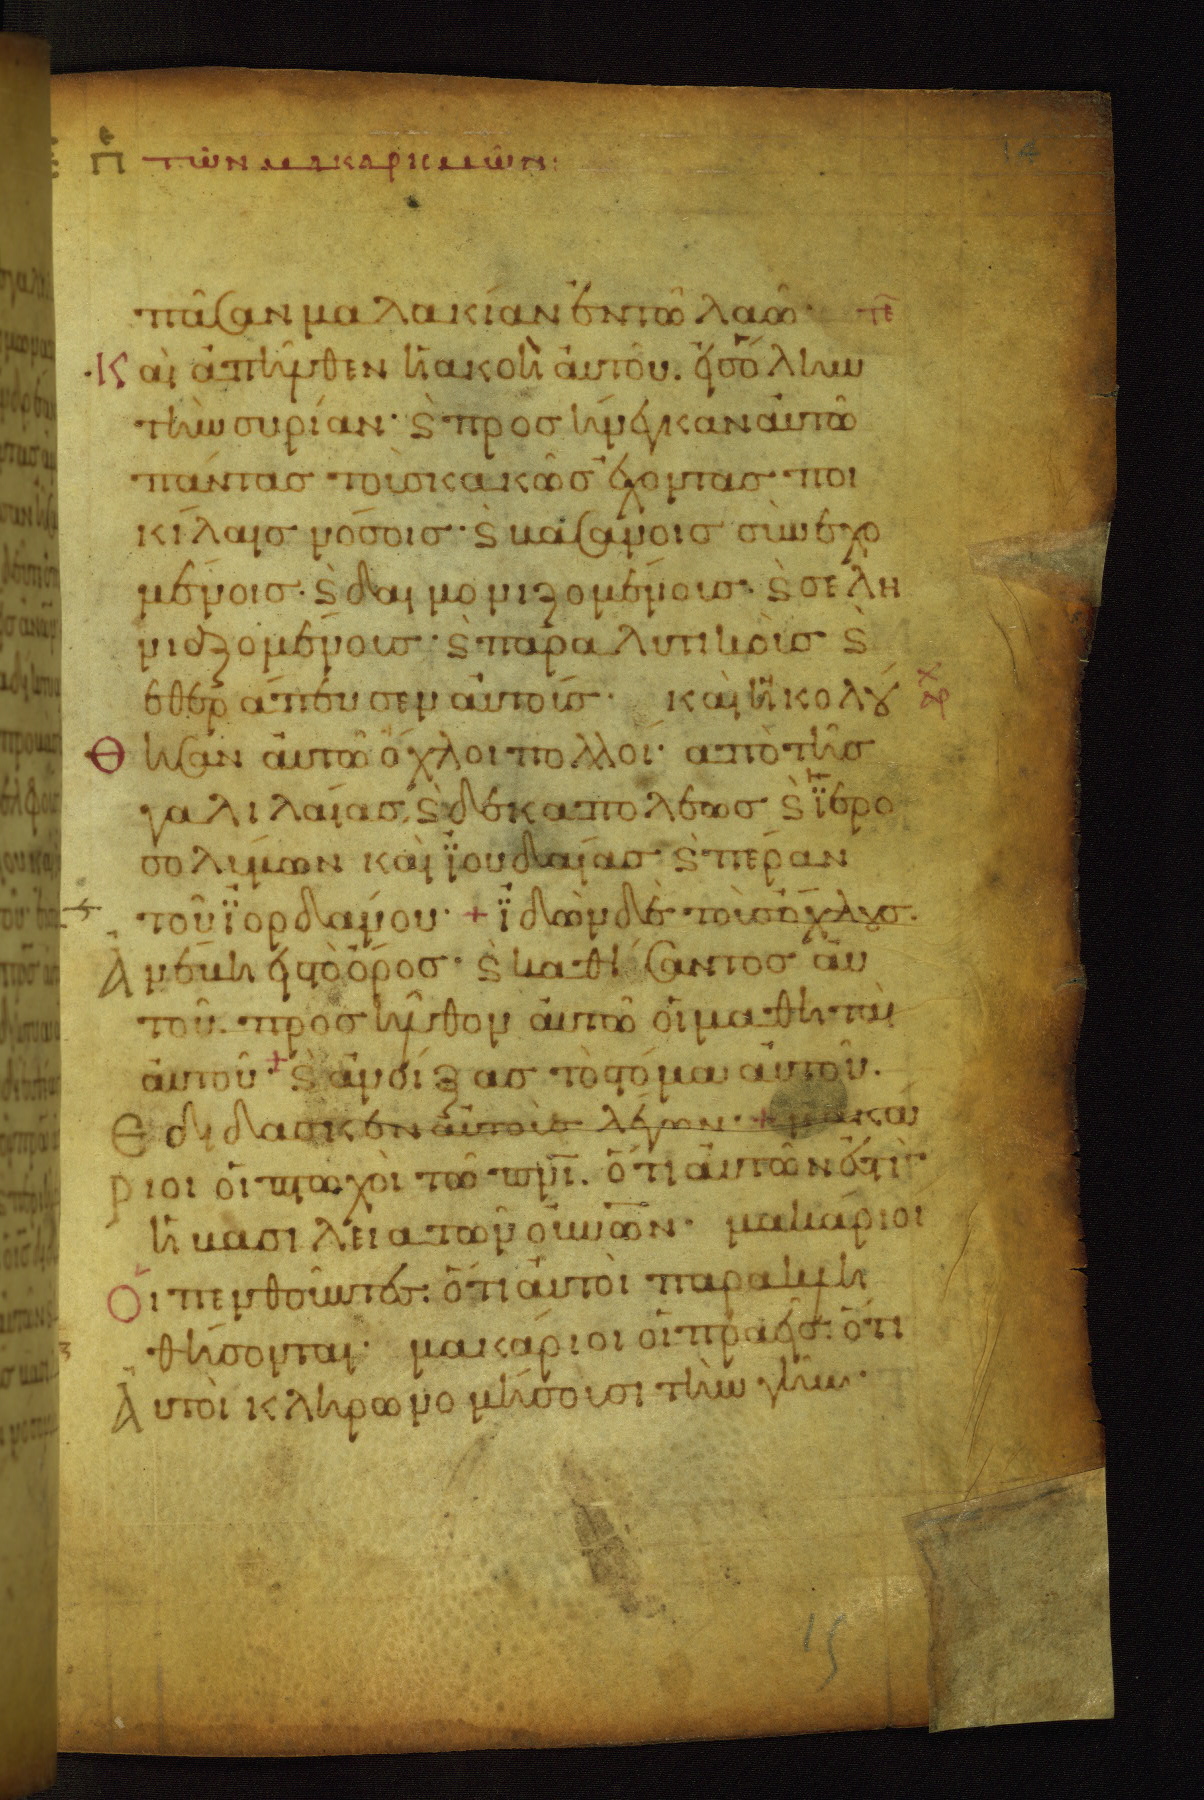 τῶν μακαρισμῶν:
14
πᾶσαν μαλακίαν ἐν τῶ λαῶ· τε
Καὶ ἀπῆλθεν ἡ ἀκοὴ ἀυτοῦ. εἰς ὅλην
τὴν συρίαν· ϗ προσήνεγκαν ἀυτῶ
πάντας τοὺς κακῶς ἔχοντας ποι
κίλαις νόσοις· ϗ βασάνοις συνεχο
μένοις· ϗ δαιμονιζομένους· ϗ σελη
νιαζομένους· ϗ παραλυτικοὺς ϗ
ἐθεράπευσεν ἀυτούς· καὶ ἠκολού
Θησαν ἀυτῶ ὄχλοι πολλοί· ἀπὸ τῆς
γαλιλαίας, ϗ δεκαπόλεως ϗ ϊερο
σολύμων καὶ ϊουδαίας ϗ πέραν
τοῦ ϊορδάνου· + ϊδὼν δὲ τοὺς ὄχλους.
Ἀνέβη εἰς τὸ ὄρος· ϗ καθίσαντος ἀυ
τοῦ. προσῆλθον ἀυτῶ οἱ μαθηταὶ
ἀυτοῦ· + ϗ ἀνοίξας τὸ στόμα ἀυτοῦ.
Ἐδίδασκεν ἀυτοὺς λέγων· + μακά
ριοι οἱ πτωχοὶ τῶ πνι. ὅτι ἀυτῶν ἐστὶν
ἡ βασιλεία τῶν οὐνῶν· μακάριοι
Οἱ πενθοῦντες: ὅτι ἀυτοὶ παρακλη
θήσονται· μακάριοι οἱ πραεῖς: ὅτι
Ἀυτοὶ κληρωνομήσουσι τὴν γῆν·
15